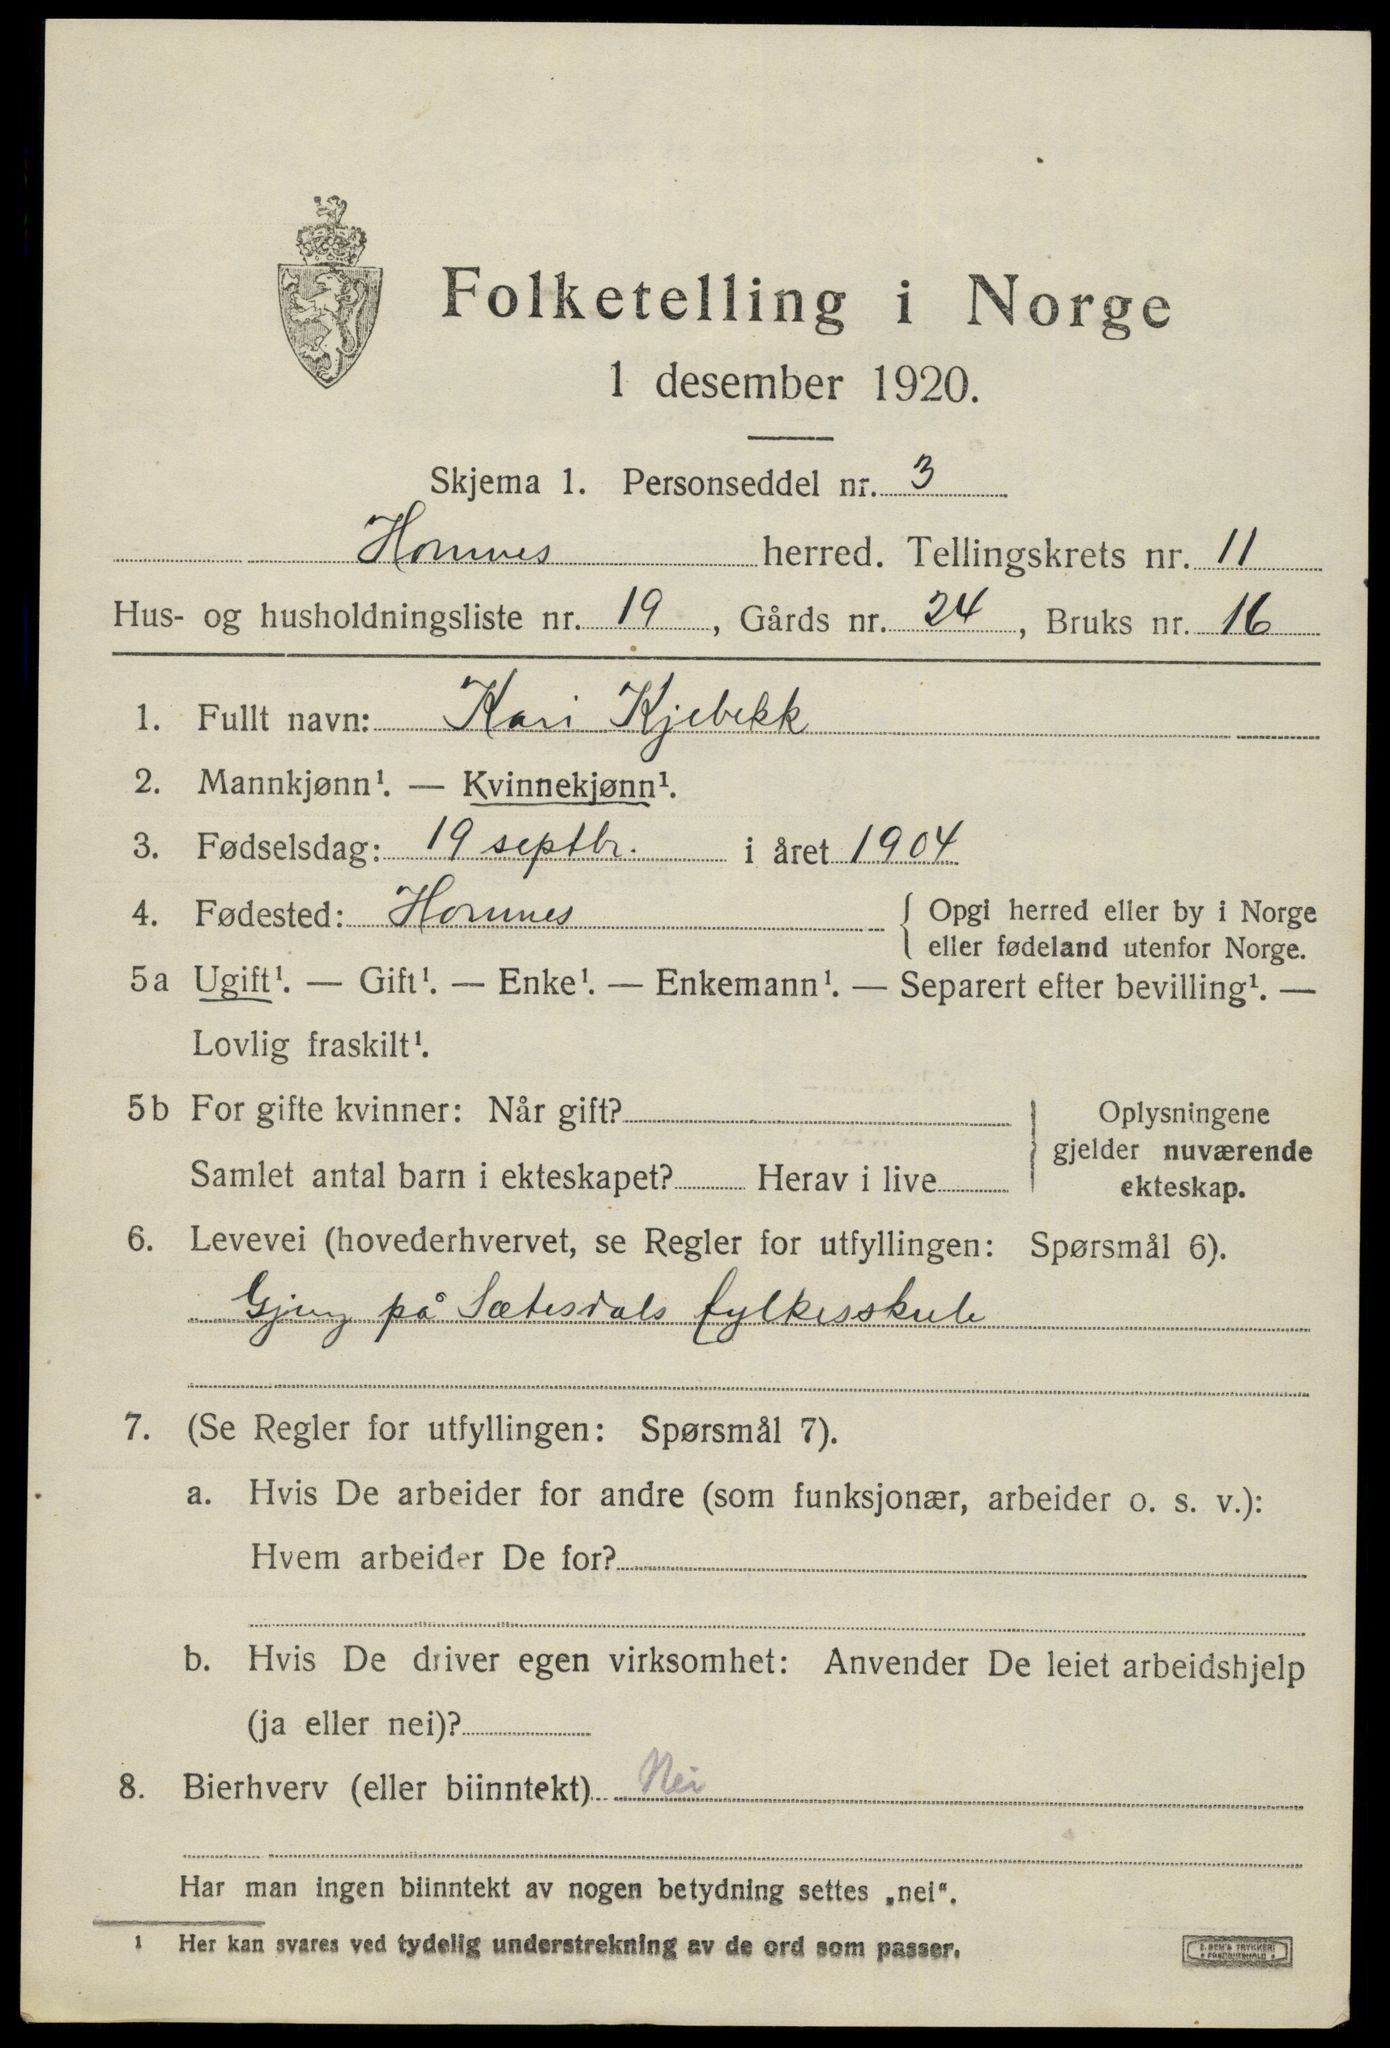 Folketelling i Norge
1 desember 1920.
Skjema 1. Personseddel nr. 3
Hornnes herred. Tellingskrets nr. 11
Hus- og husholdningsliste nr. 19, Gårds nr. 24, Bruks nr. 16
1. Fullt navn: Kari Kjebekk
2. Mannkjønn¹. — Kvinnekjønn¹.
3. Fødselsdag: 19 septbr. i året 1904
4. Fødested: Hornnes { Opgi herred eller by i Norge
eller fødeland utenfor Norge.
5a Ugift¹. — Gift¹. — Enke¹. — Enkemann¹. — Separert efter bevilling¹. —
Lovlig fraskilt¹.
5b For gifte kvinner: Når gift?
Samlet antal barn i ekteskapet? Herav i live
} Oplysningene
gjelder nuværende
ekteskap.
6. Levevei (hovederhvervet, se Regler for utfyllingen: Spørsmål 6).
Gjeng på Sætesdals fylkesskule
7. (Se Regler for utfyllingen: Spørsmål 7).
a. Hvis De arbeider for andre (som funksjonær, arbeider o. s. v.):
Hvem arbeider De for?
b. Hvis De driver egen virksomhet: Anvender De leiet arbeidshjelp
(ja eller nei)?
8. Bierhverv (eller biinntekt) Nei
Har man ingen biinntekt av nogen betydning settes „nei“.
1 Her kan svares ved tydelig understrekning av de ord som passer.